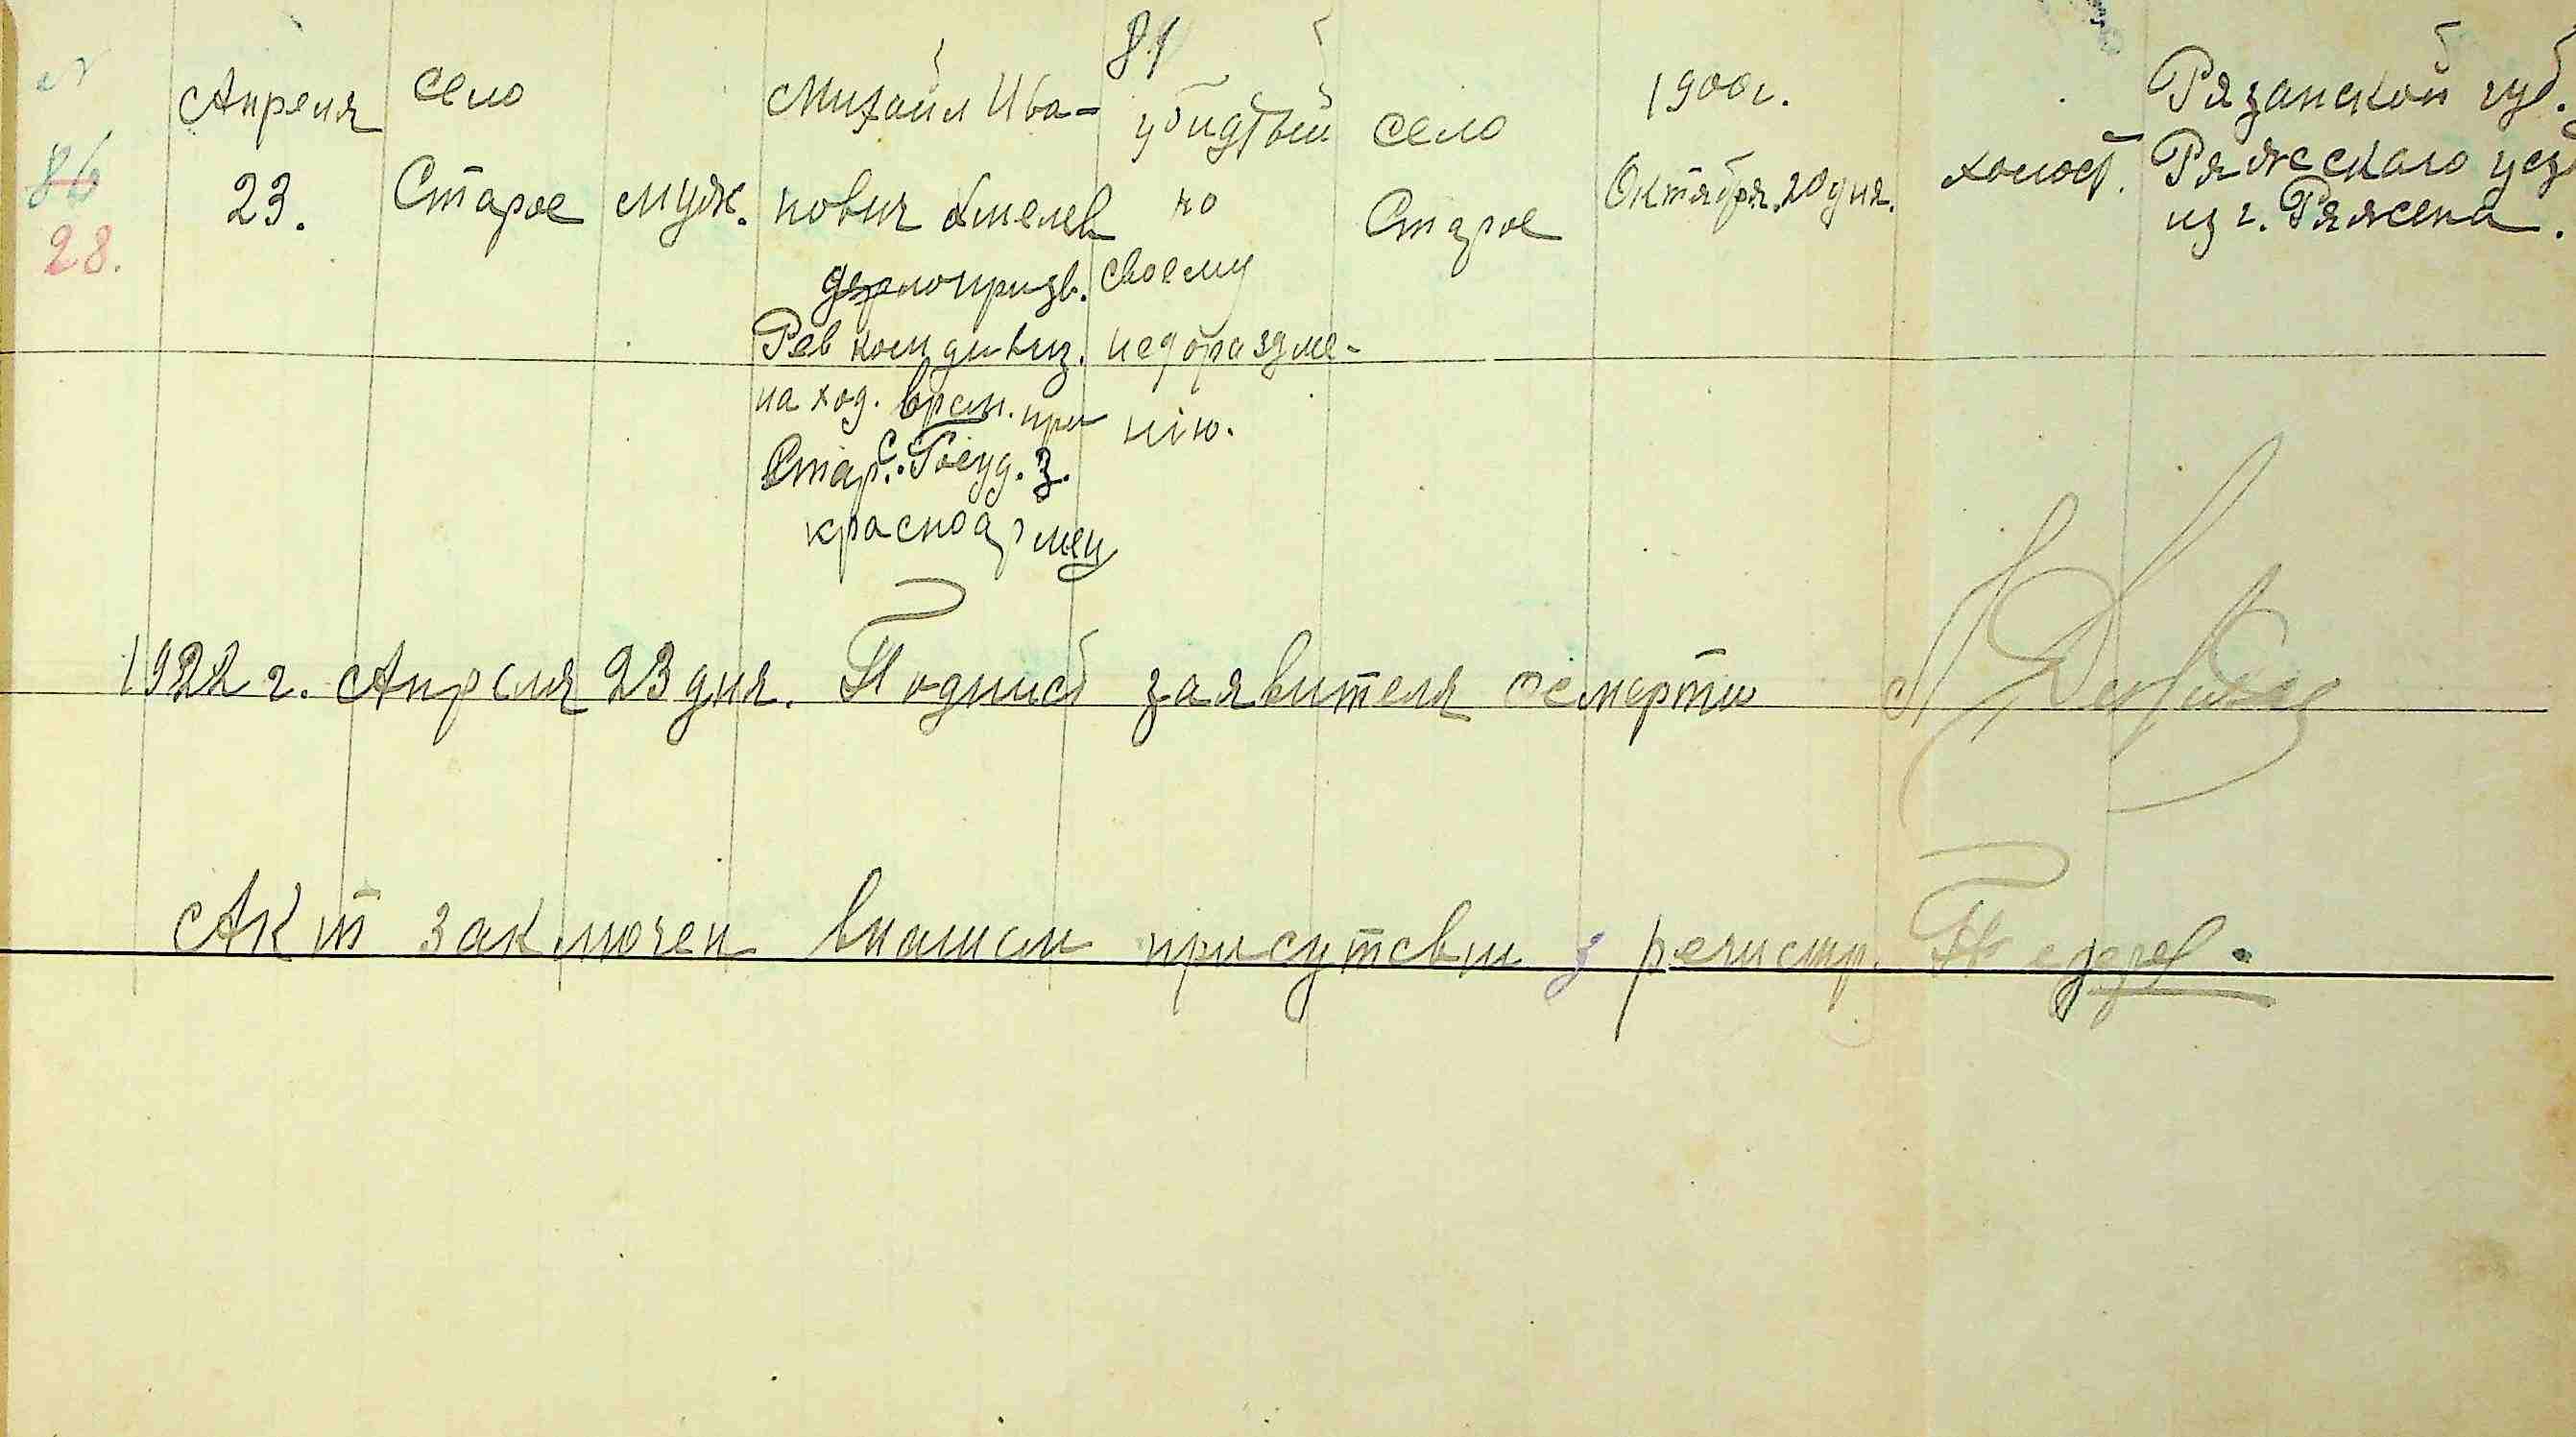 81
№
86
28.
Апреля
23.
село
Старое
муж.
Михаил Ива-
нович Хмелев
Рев ком дивиз.
наход. врем. при
Стар. С. Госуд. З.
красноармец
убидтвй
по
своему
недоразуме-
нію.
село
Старое
1900 г.
Октября 20 дня.
холост.
Рязанской губ.
Ряжскаго уез
из г. Ряжска.
1922 г. Апреля 23 дня. Подпись заявителя о смерти
Акт заключен внашем присутсвии з регистр.